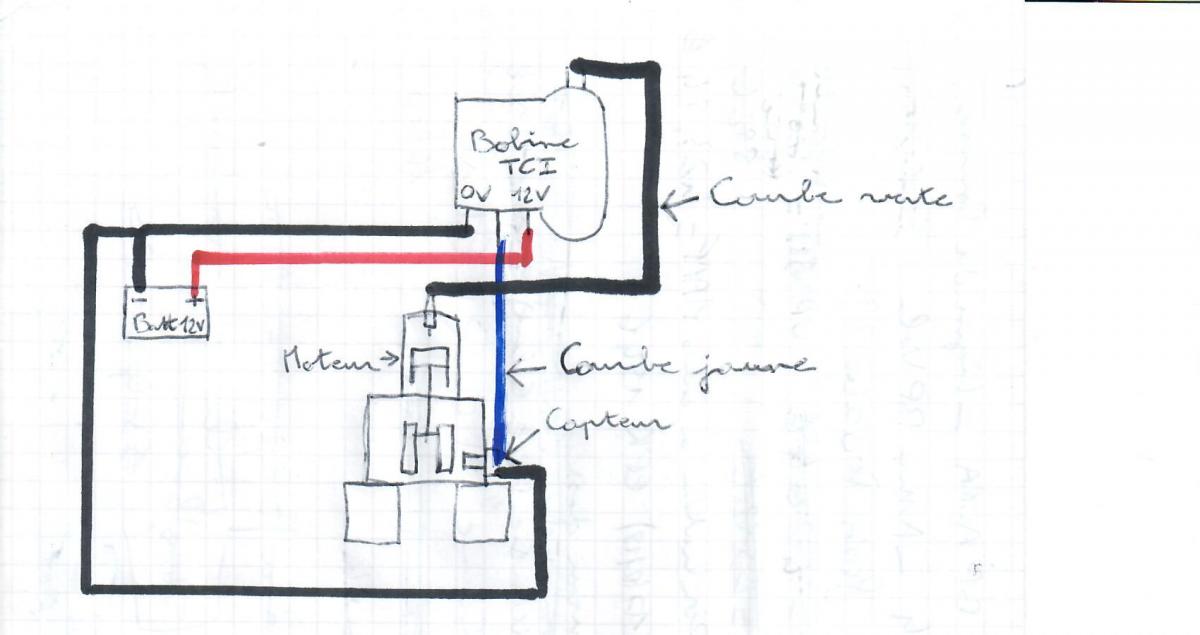 Bobine
TCI
0V 12V
Courbe verte
- +
Batt 12V
Moteur
Courbe jaune
Capteur